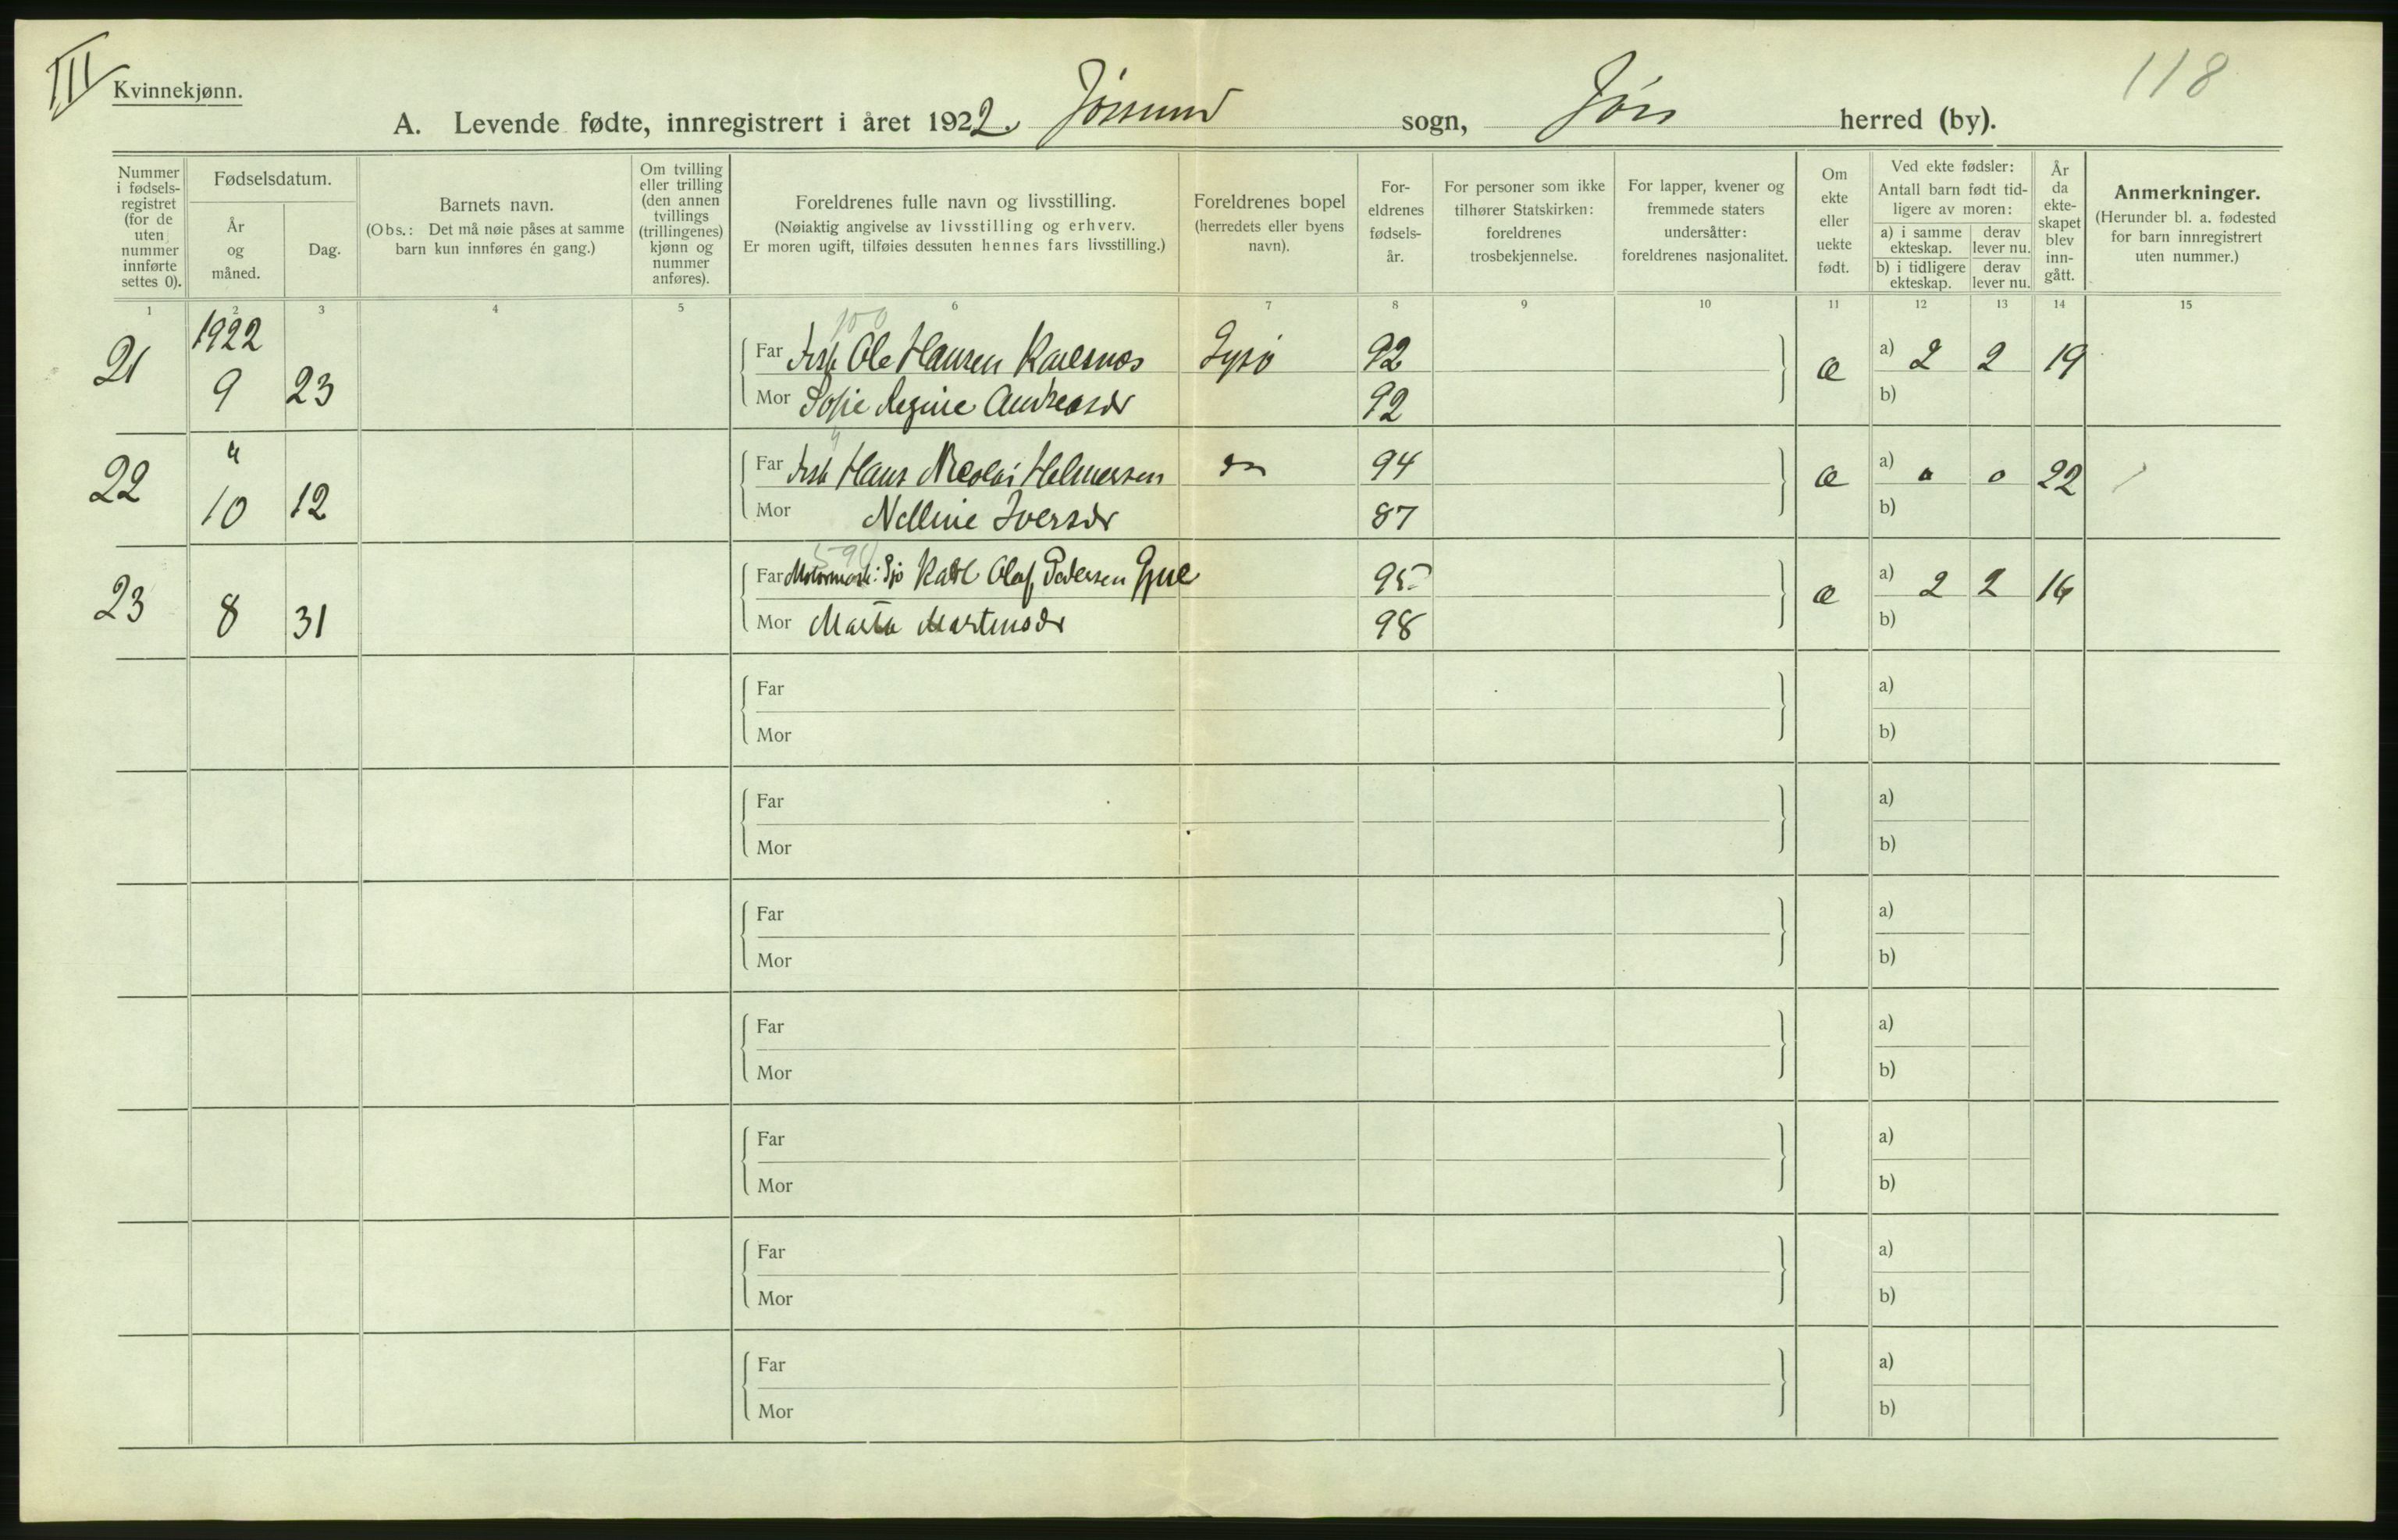 III
Kvinnekjønn.
118
A. Levende fødte, innregistrert i året 1922. Jøssund sogn, Jøss herred (by).
Nummer i fødsels-registret (for de uten nummer innførte settes 0).
Fødselsdatum.
År og måned.
Dag.
Barnets navn.
(Obs.: Det må nøie påses at samme barn kun innføres én gang.)
Om tvilling eller trilling (den annen tvillings (trillingenes) kjønn og nummer anføres).
Foreldrenes fulle navn og livsstilling.
(Nøiaktig angivelse av livsstilling og erhverv.
Er moren ugift, tilføies dessuten hennes fars livsstilling.)
Foreldrenes bopel
(herredets eller byens navn).
For-eldrenes fødsels-år.
For personer som ikke tilhører Statskirken: foreldrenes trosbekjennelse.
For lapper, kvener og fremmede staters undersåtter: foreldrenes nasjonalitet.
Om ekte eller uekte født.
Ved ekte fødsler:
Antall barn født tid-ligere av moren:
a) i samme ekteskap.
derav lever nu.
b) i tidligere ekteskap.
derav lever nu.
År da ekte-skapet blev inn-gått.
Anmerkninger.
(Herunder bl. a. fødested for barn innregistrert uten nummer.)
1 2 3 4 5 6 7 8 9 10 11 12 13 14 15
100
21 1922 9 23 Far Fisk Ole Hansen Karlsnes Lysø 92 a) 2 2 19
Mor Sofie Regine Andreasdr 92 b)
22 " 10 12 Far Fisk Hans Nicolai Helmersen do 94 a) 0 0 22
Mor Nelline Iversdr 87 b)
23 8 31 Far Karl Olaf Pedersen 95 a) 2 2 16
Mor Marta Martinsdr 98 b)
Far a)
Mor b)
Far a)
Mor b)
Far a)
Mor b)
Far a)
Mor b)
Far a)
Mor b)
Far a)
Mor b)
Far a)
Mor b)